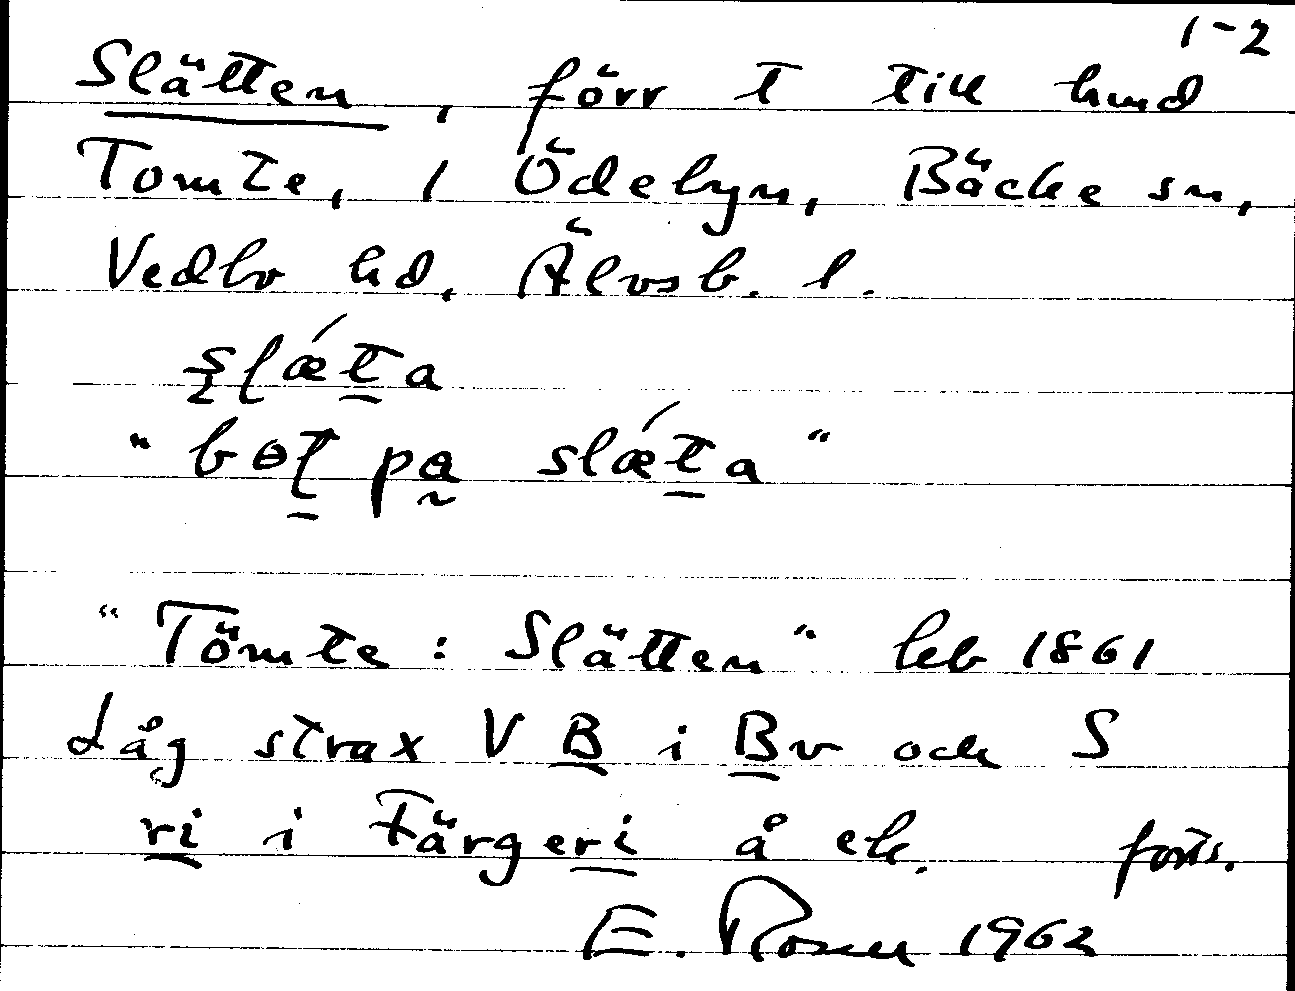 1-2
Slätten, förr t till hmd
Tomte, 1 Ödebyn, Bäcke sn,
Vedbo hd, Älvsb. l.
slǽta
"bot pa slǽta"
"Tömte: Slätten" hfb 1861
Låg strax V B i Bv och S
ri i Färgeri å ek. forts.
E. Rosell 1962